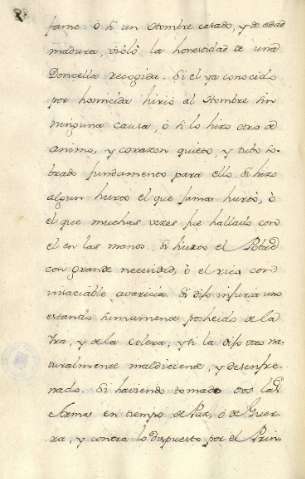 fame ó si un Hombre casado, y de edad
madura, violó la honestidad de una
Doncella recogida. Si el ya conocido
por homicida hirió al Hombre sin
ninguna causa, ó si lo hizo otro de
animo, y corazon quieto, y tubo so-
brado fundamento para ello. Si hizo
algun hurto el que jamas hurtó, ó
el que muchas veces fue hallado con
el en las manos. Si hurtó el Pobre
con grande necesidad, ó el rico con
insaciable avaricia. Si dijo injuria uno
estando sumamente poseido de la
Ira, y de la colera, y si la dijo otro na-
turalmente maldiciente, y desenfre-
nado. Si haviendo tomado dos las
Armas en tiempo de Paz, ó de Guer-
ra, y contra lo dispuesto por el Prin-